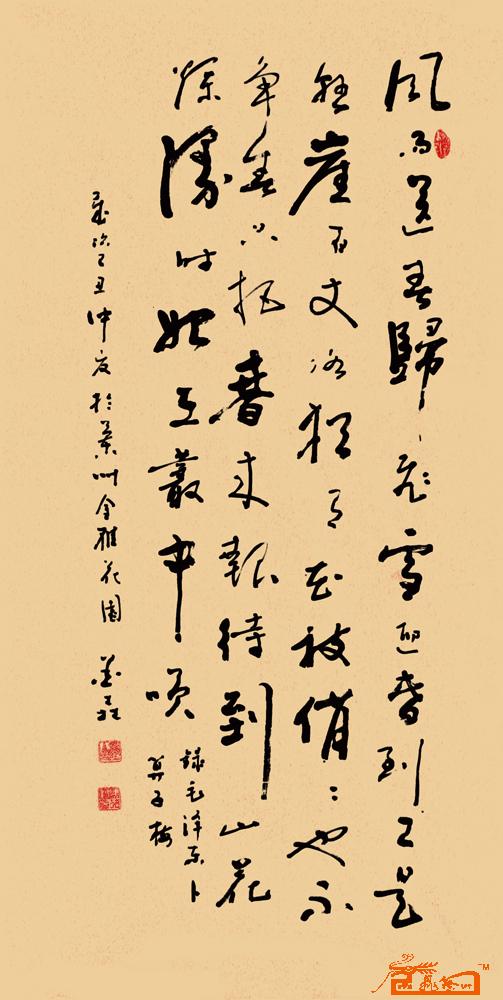 风雨送春歸飞雪迎春到已是
悬崖百丈冰犹有花枝俏〻也不
争春只把春来報待到山花
烂漫时她在叢中笑
録毛泽东卜
算子梅
岁次己丑仲夏於莱州金雅花園